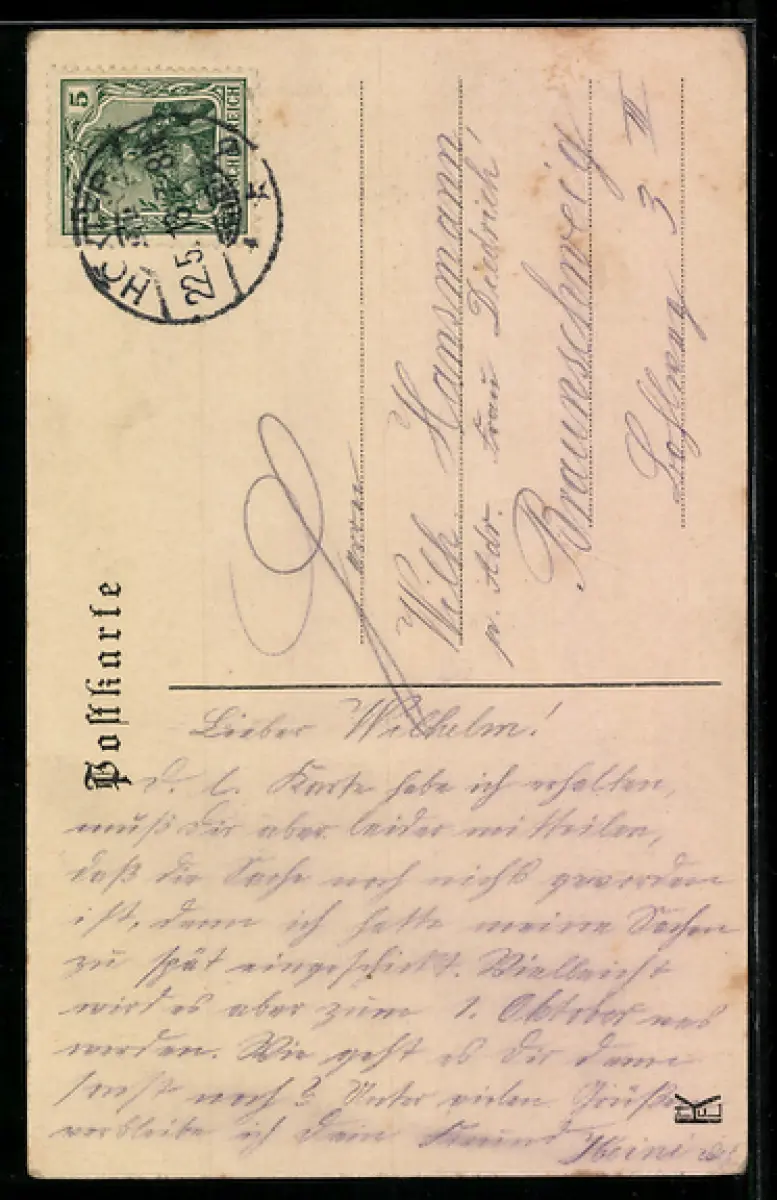 Postkarte
5
DEUTSCHES REICH
22.5.
Herrn
Wilh. Hansmann
p. Adr. Frau Diedrich!
Braunschweig
3 II
Lieber Wilhelm!
D. l. Karte habe ich erhalten,
muß Dir aber leider mitteilen,
daß die Sache noch nichts geworden
ist, denn ich hatte meine Sachen
zu spät eingeschickt. Vielleicht
wird es aber zum 1. Oktober was
werden. Wie geht es Dir denn
sonst noch? Unter vielen Grüßen
verbleibe ich Dein Freund Heini